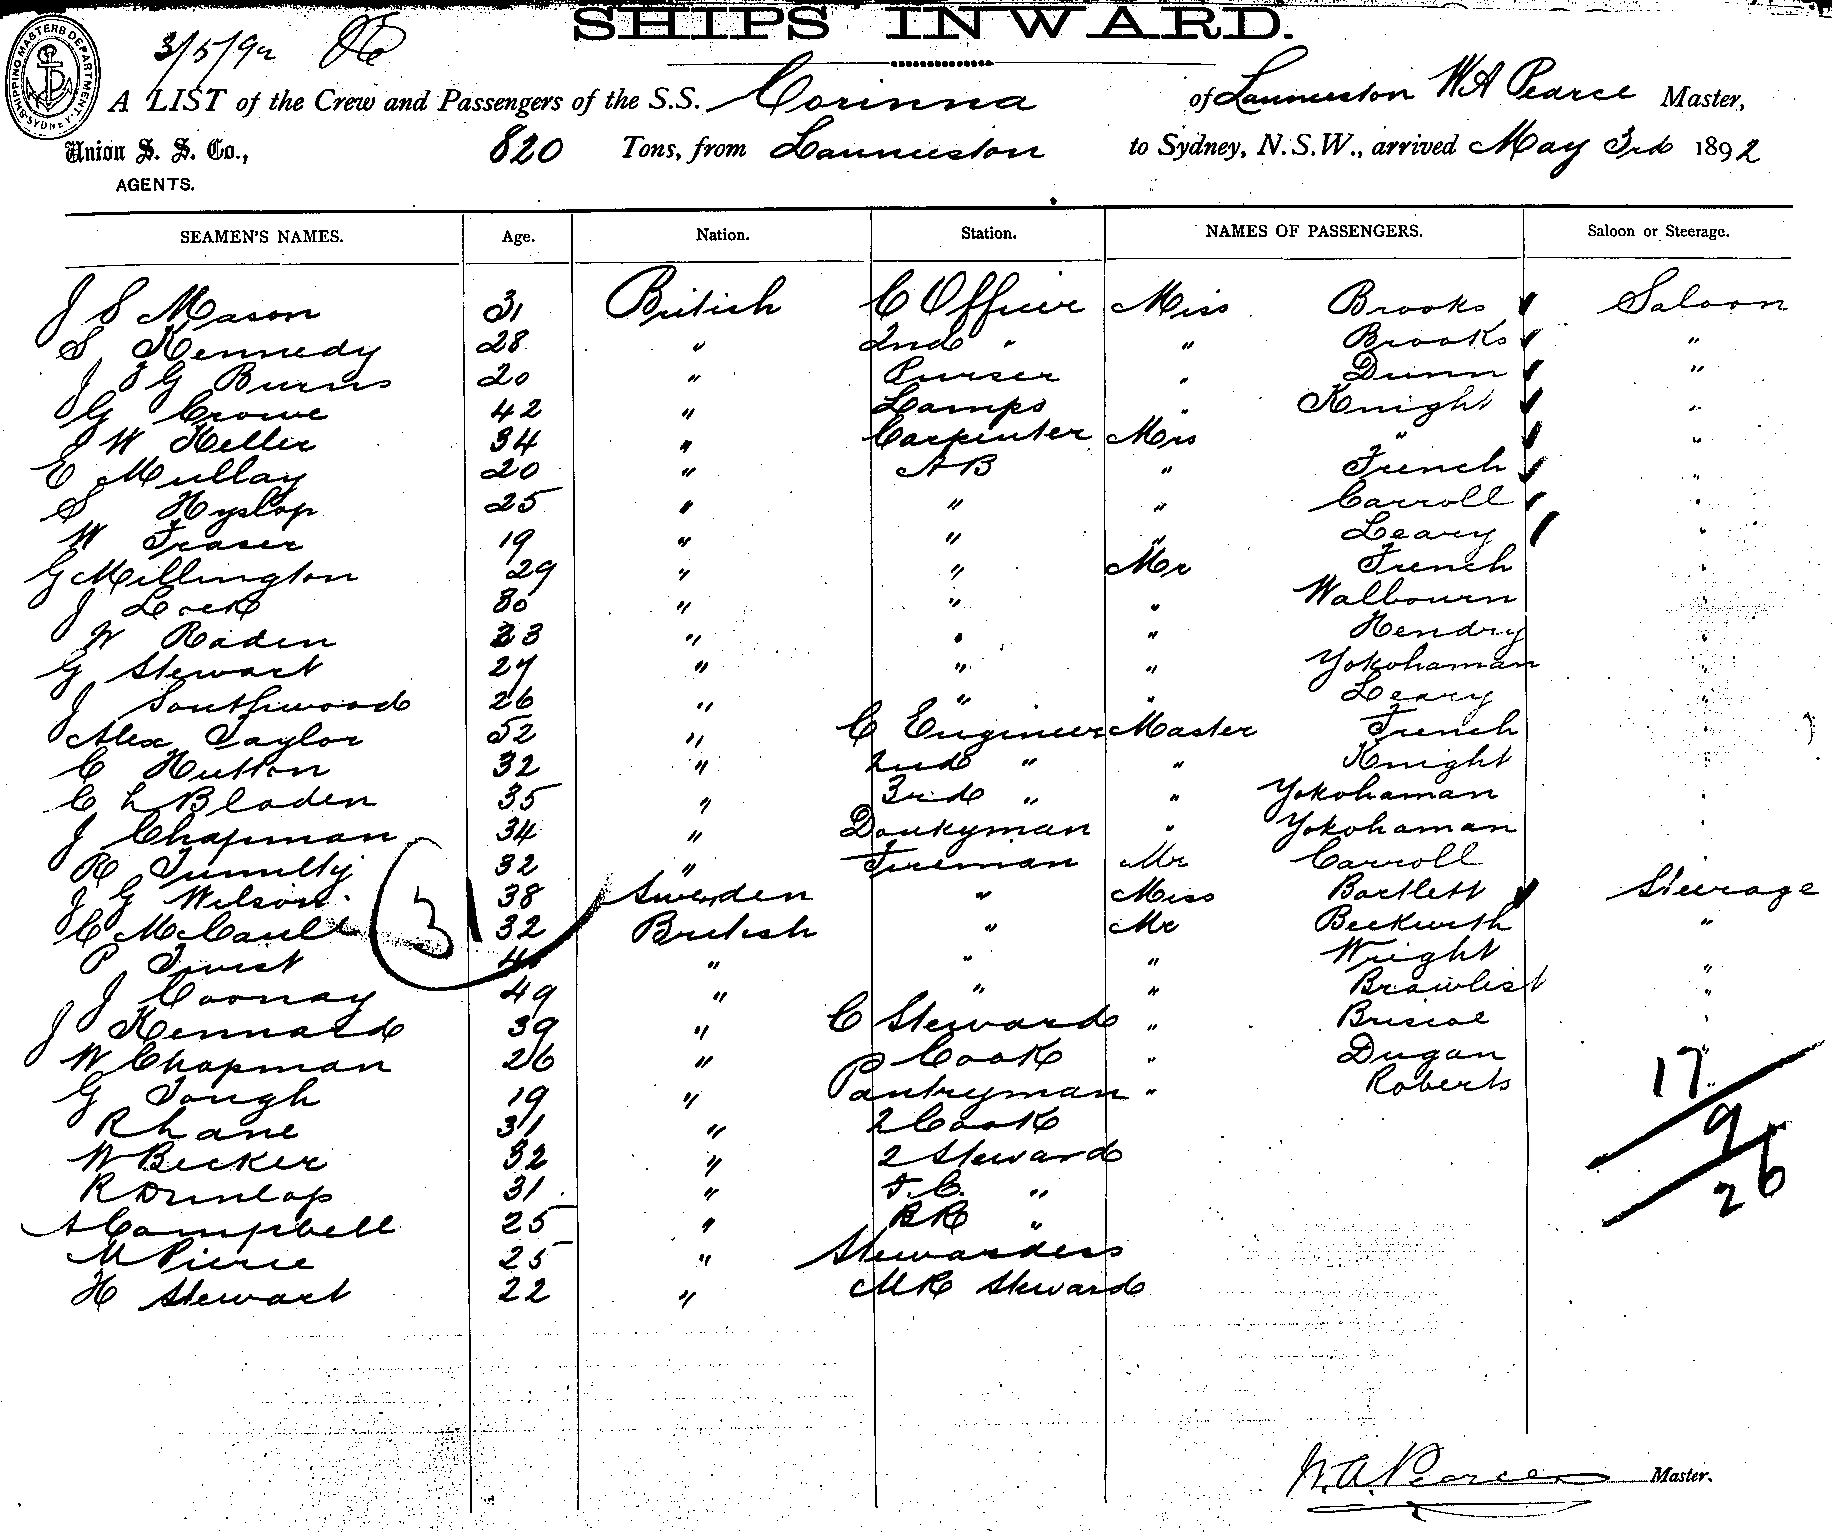 SHIPS INWARD.
3/5/92
SHIPPING MASTERS DEPARTMENT. SYDNEY.
A LIST of the Crew and Passengers of the S.S. Corinna of Launceston W A Pearce Master,
Union S. S. Co., 820 Tons, from Launceston to Sydney, N.S.W., arrived May 3rd 1892
AGENTS.
SEAMEN'S NAMES. Age. Nation. Station. NAMES OF PASSENGERS. Saloon or Steerage.
J S Mason 31 British C Officer Miss Brooks Saloon
S Kennedy 28 " 2nd " " Brooks "
J F G Burns 20 " Purser " Dunn "
G Crowe 42 " Lamps " Knight "
J W Heller 34 " Carpenter Mrs " "
E Mullay 20 " AB " French "
S Hyslop 25 " " " Carroll "
W Fraser 19 " " " Leary "
G Millington 29 " " Mr French "
J Lock 30 " " " Walbourn "
W Raden 33 " " " Hendry "
G Stewart 27 " " " Yokohaman "
J Southwood 26 " " " Leary "
Alex Taylor 52 " C Engineer Master French "
C Hutton 32 " 2nd " " Knight "
C L Bladen 35 " 3rd " " Yokohaman "
J Chapman 34 " Donkyman " Yokohaman "
R Tumulty 32 " Fireman Mr Carroll "
J G Wilson 38 Sweden " Miss Bartlett Steerage
C McCaull 32 British " Mr Beckwith "
P Twist " " " Wright "
J Coonay 49 " " " Brawlist "
J Kennard 39 " C Steward " Briscoe "
W Chapman 26 " Cook " Dugan "
G Tough 19 " Pantryman " Roberts "
R Lane 31 " 2 Cook
W Becker 32 " 2 Steward
R Dunlop 31 " F.C. "
A Campbell 25 " BR "
M Pierce 25 " Stewardess
H Stewart 22 " MR Steward
31
17
9
26
W.A. Pearce Master.